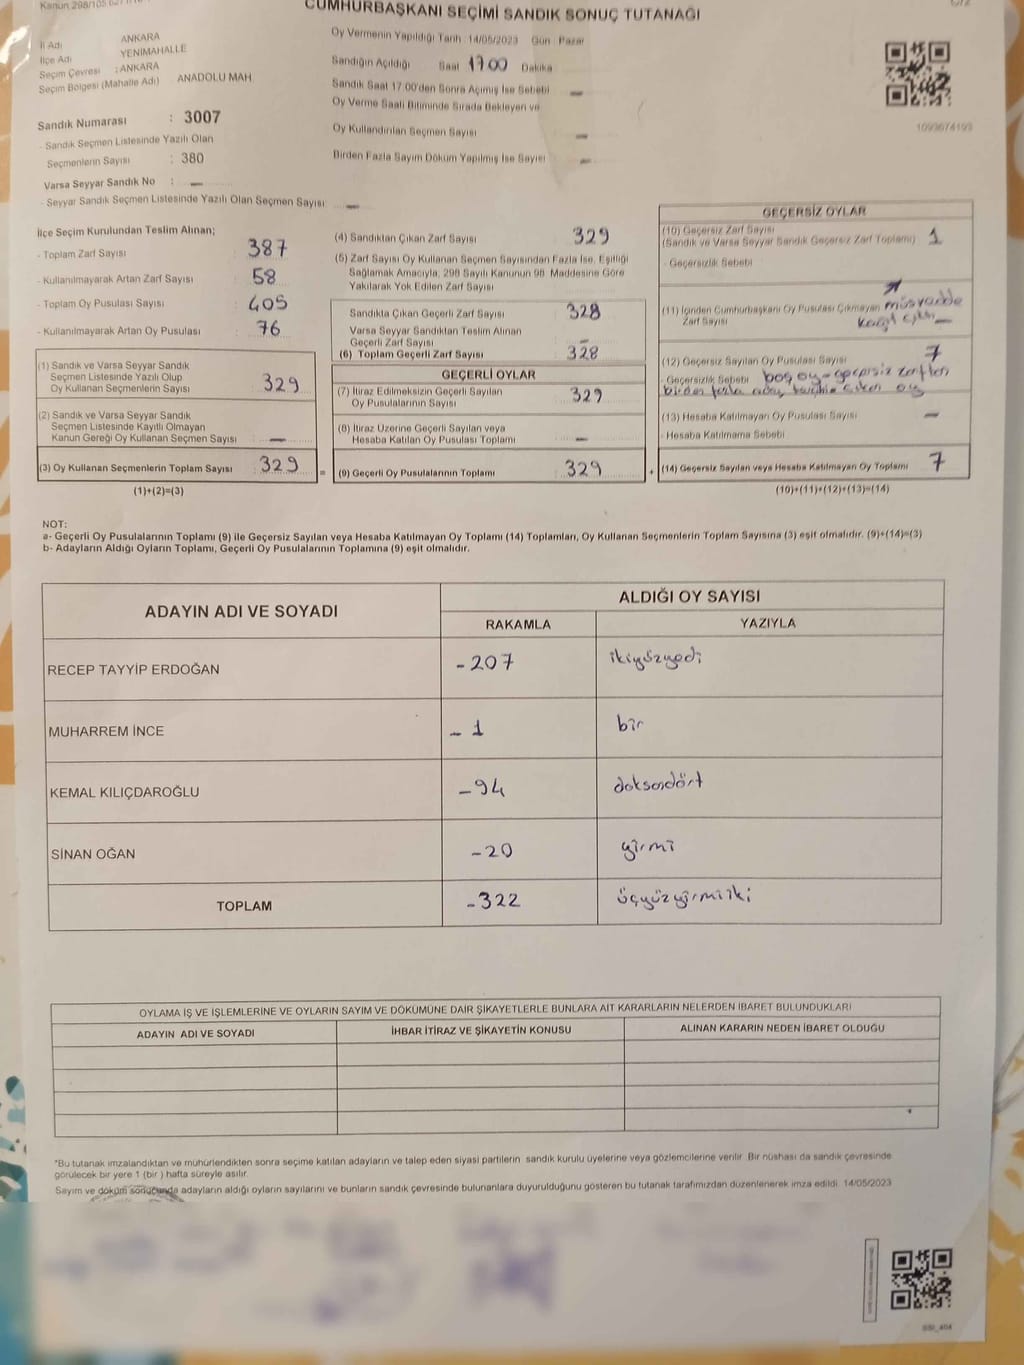 CUMHURBAŞKANI SEÇİMİ SANDIK SONUÇ TUTANAĞI
İl Adı ANKARA
İlçe Adı YENİMAHALLE
Seçim Çevresi : ANKARA
Seçim Bölgesi (Mahalle Adı) ANADOLU MAH.
Sandık Numarası : 3007
- Sandık Seçmen Listesinde Yazılı Olan
Seçmenlerin Sayısı : 380
Varsa Seyyar Sandık No : –
- Seyyar Sandık Seçmen Listesinde Yazılı Olan Seçmen Sayısı –
Oy Vermenin Yapıldığı Tarih :14/05/2023 Gün Pazar
Sandığın Açıldığı Saat 17 00 Dakika
Sandık Saat 17.00'den Sonra Açımış İse Sebebi –
Oy Verme Saati Bitiminde Sırada Bekleyen ve
Oy Kullandırılan Seçmen Sayısı –
Birden Fazla Sayım Döküm Yapılmış İse Sayısı –
1093674193
İlçe Seçim Kurulundan Teslim Alınan;
- Toplam Zarf Sayısı : 387
- Kullanılmayarak Artan Zarf Sayısı : 58
- Toplam Oy Pusulası Sayısı : 405
- Kullanılmayarak Artan Oy Pusulası : 76
(1) Sandık ve Varsa Seyyar Sandık
Seçmen Listesinde Yazılı Olup
Oy Kullanan Seçmenlerin Sayısı 329
(2) Sandık ve Varsa Seyyar Sandık
Seçmen Listesinde Kayıtlı Olmayan
Kanun Gereği Oy Kullanan Seçmen Sayısı –
(3) Oy Kullanan Seçmenlerin Toplam Sayısı 329 =
(1)+(2)=(3)
(4) Sandıktan Çıkan Zarf Sayısı 329
(5) Zarf Sayısı Oy Kullanan Seçmen Sayısından Fazla İse, Eşitliği
Sağlamak Amacıyla, 298 Sayılı Kanunun 98. Maddesine Göre
Yakılarak Yok Edilen Zarf Sayısı
Sandıkta Çıkan Geçerli Zarf Sayısı 328
Varsa Seyyar Sandıktan Teslim Alınan
Geçerli Zarf Sayısı –
(6) Toplam Geçerli Zarf Sayısı 328
GEÇERLİ OYLAR
(7) İtiraz Edilmeksizin Geçerli Sayılan
Oy Pusulalarının Sayısı 329
(8) İtiraz Üzerine Geçerli Sayılan veya
Hesaba Katılan Oy Pusulası Toplamı –
(9) Geçerli Oy Pusulalarının Toplamı 329 +
GEÇERSİZ OYLAR
(10) Geçersiz Zarf Sayısı
(Sandık ve Varsa Seyyar Sandık Geçersiz Zarf Toplamı) 1
- Geçersizlik Sebebi
(11) İçinden Cumhurbaşkanı Oy Pusulası Çıkmayan müsvedde
Zarf Sayısı kağıt çıktı –
(12) Geçersiz Sayılan Oy Pusulası Sayısı 7
- Geçersizlik Sebebi boş oy - geçersiz zarftan
birden fazla aday çıkan oy
(13) Hesaba Katılmayan Oy Pusulası Sayısı –
- Hesaba Katılmama Sebebi
(14) Geçersiz Sayılan veya Hesaba Katılmayan Oy Toplamı 7
(10)+(11)+(12)+(13)=(14)
NOT:
a- Geçerli Oy Pusulalarının Toplamı (9) ile Geçersiz Sayılan veya Hesaba Katılmayan Oy Toplamı (14) Toplamları, Oy Kullanan Seçmenlerin Toplam Sayısına (3) eşit olmalıdır. (9)+(14)=(3)
b- Adayların Aldığı Oyların Toplamı, Geçerli Oy Pusulalarının Toplamına (9) eşit olmalıdır.
ADAYIN ADI VE SOYADI
ALDIĞI OY SAYISI
RAKAMLA YAZIYLA
RECEP TAYYİP ERDOĞAN -207 ikiyüzyedi
MUHARREM İNCE -1 bir
KEMAL KILIÇDAROĞLU -94 doksandört
SİNAN OĞAN -20 yirmi
TOPLAM -322 üçyüzyirmiiki
OYLAMA İŞ VE İŞLEMLERİNE VE OYLARIN SAYIM VE DÖKÜMÜNE DAİR ŞİKAYETLERLE BUNLARA AİT KARARLARIN NELERDEN İBARET BULUNDUKLARI
ADAYIN ADI VE SOYADI İHBAR İTİRAZ VE ŞİKAYETİN KONUSU ALINAN KARARIN NEDEN İBARET OLDUĞU
*Bu tutanak imzalandıktan ve mühürlendikten sonra seçime katılan adayların ve talep eden siyasi partilerin sandık kurulu üyelerine veya gözlemcilerine verilir. Bir nüshası da sandık çevresinde
görülecek bir yere 1 (bir) hafta süreyle asılır.
Sayım ve döküm sonucunda adayların aldığı oyların sayılarını ve bunların sandık çevresinde bulunanlara duyurulduğunu gösteren bu tutanak tarafımızdan düzenlenerek imza edildi. 14/05/2023